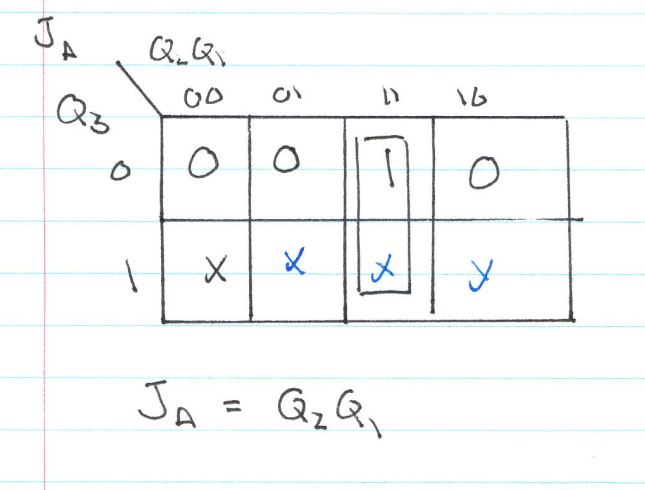 J_A Q₂Q₁
Q₃ 00 01 11 10
0 0 0 1 0
1 X X X X
J_A = Q₂Q₁